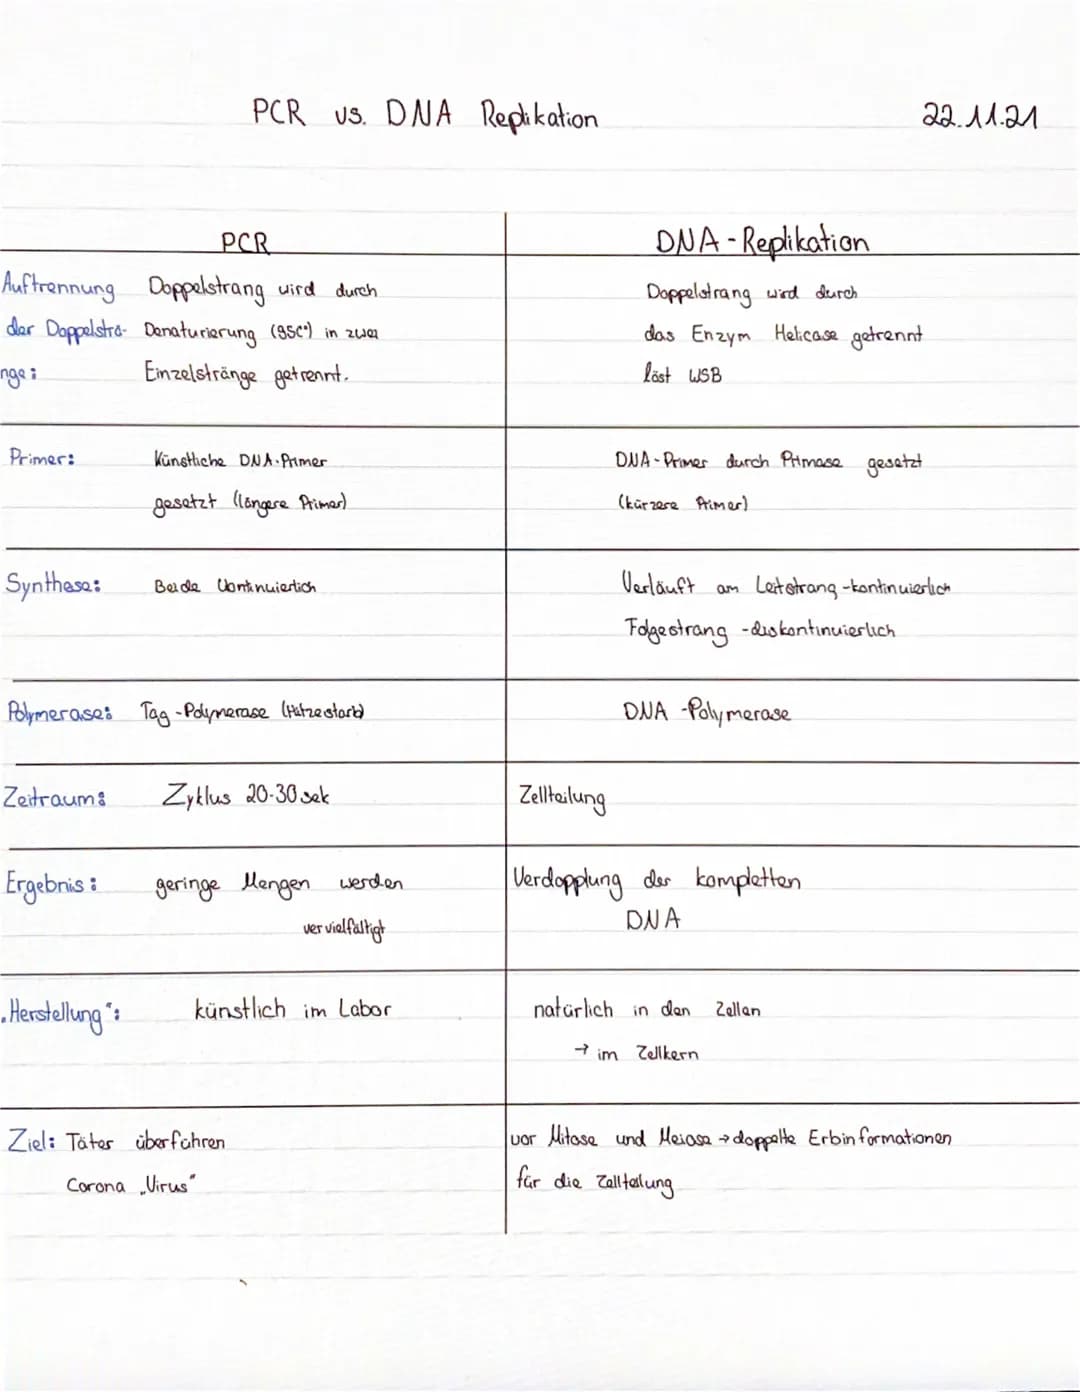 PCR vs. DNA Replikation 22.11.21
PCR DNA-Replikation
Auftrennung Doppelstrang wird durch Doppelstrang wird durch
der Doppelstrà- Denaturierung (95C°) in zwei das Enzym Helicase getrennt
nge: Einzelstränge getrennt. löst WSB
Primer: Künstliche DNA-Primer DNA-Primer durch Primase gesetzt
gesetzt (längere Primer) (kürzere Primer)
Synthese: Beide kontinuierlich Verläuft am Leitstrang -kontinuierlich
Folgestrang -diskontinuierlich
Polymerase: Tag-Polymerase (Hitzestark) DNA-Polymerase
Zeitraum: Zyklus 20-30 sek Zellteilung
Ergebnis: geringe Mengen werden Verdopplung der kompletten
vervielfältigt DNA
„Herstellung": künstlich im Labor natürlich in den Zellen
→ im Zellkern
Ziel: Täter überführen vor Mitose und Meiose → doppelte Erbinformationen
Corona „Virus" für die Zellteilung